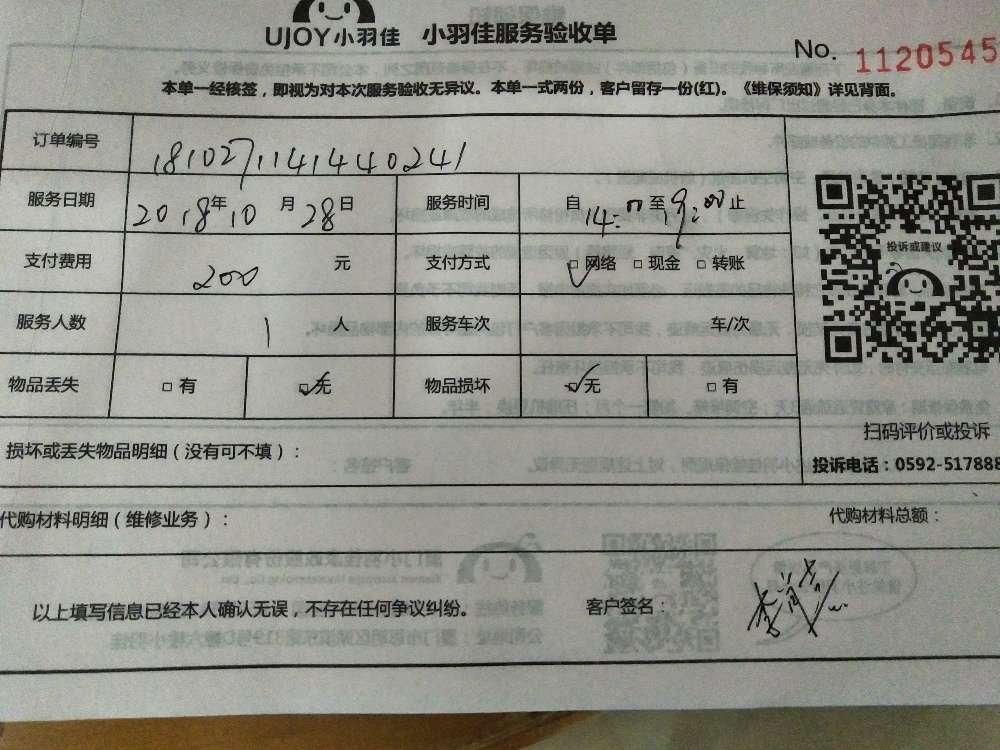 UJOY小羽佳 小羽佳服务验收单
No. 1120545
本单一经核签，即视为对本次服务验收无异议。本单一式两份，客户留存一份(红)。《维保须知》详见背面。
订单编号 181027114144024​1
服务日期 2018年10月28日 服务时间 自14:00至9:00止
支付费用 200 元 支付方式 网络 现金 转账
服务人数 1 人 服务车次 车/次
物品丢失 有 无 物品损坏 无 有
投诉或建议
扫码评价或投诉
损坏或丢失物品明细（没有可不填）：
投诉电话：0592-517888
代购材料明细（维修业务）： 代购材料总额：
以上填写信息已经本人确认无误，不存在任何争议纠纷。 客户签名：